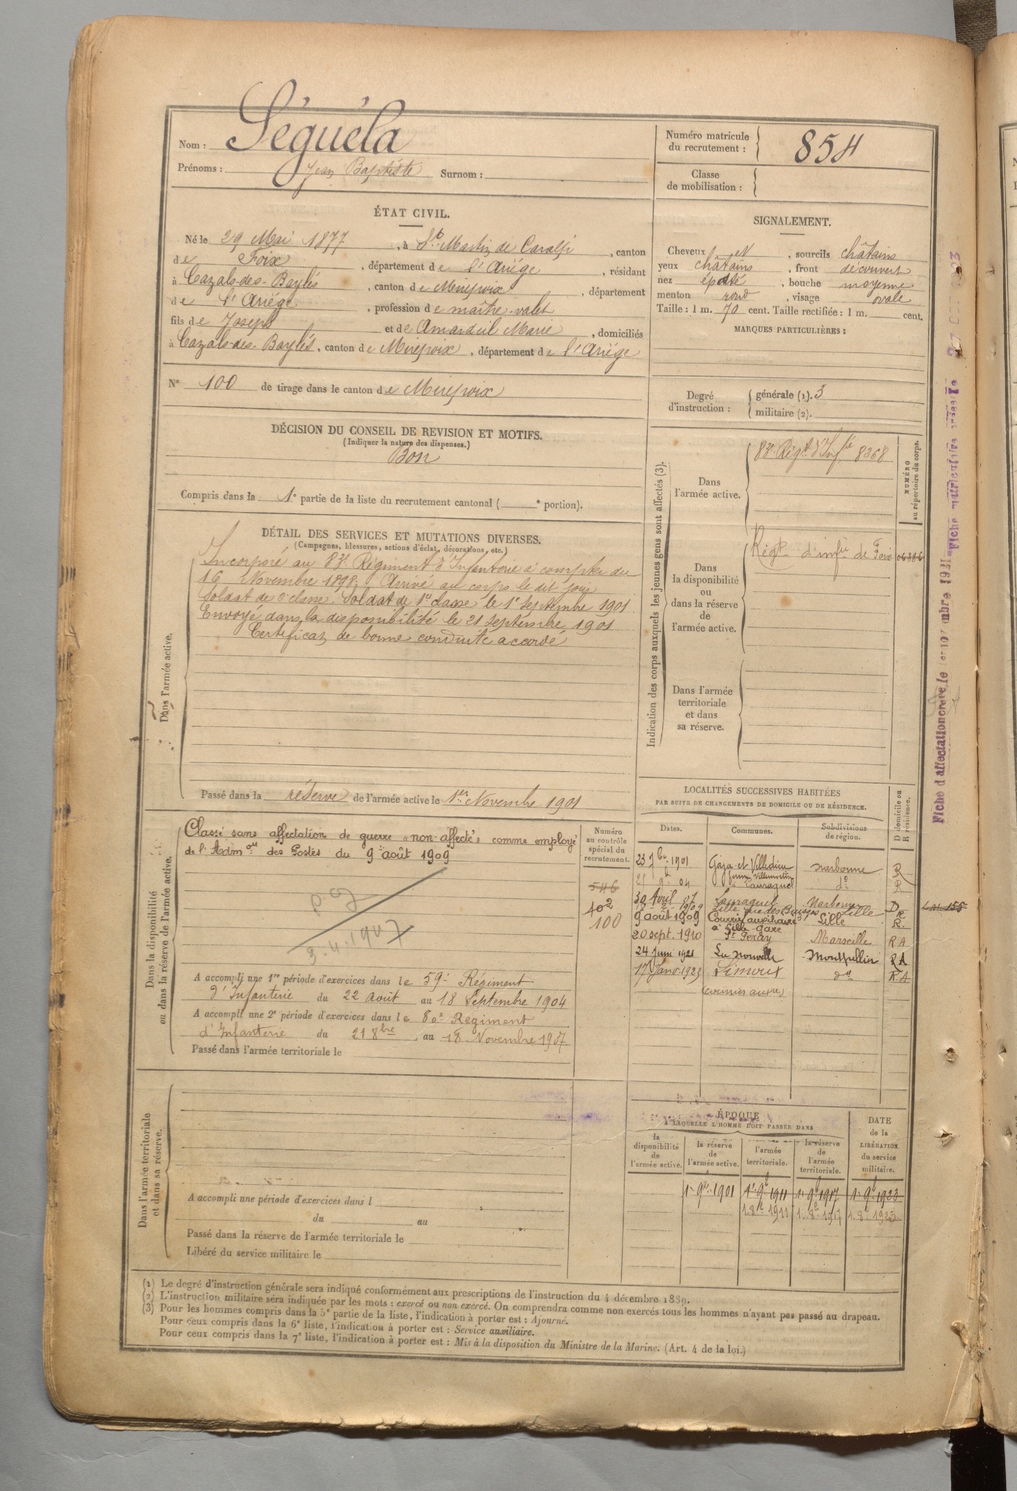 Nom : Séguéla
Prénoms : Jean Baptiste Surnom :
Numéro matricule du recrutement : 854
Classe de mobilisation :
ÉTAT CIVIL.
Né le 29 Mai 1877, à St Martin de Caralp, canton
de Foix, département de l'Ariége, résidant
à Cazals-des-Baylés, canton de Mirepoix, département
de l'Ariége, profession de maître-valet
fils de Joseph et de Amardeil Marie, domiciliés
à Cazals-des-Baylés, canton de Mirepoix, département de l'Ariége
N° 100 de tirage dans le canton de Mirepoix
SIGNALEMENT.
Cheveux et, sourcils châtains
yeux châtains, front découvert
nez épaté, bouche moyenne
menton rond, visage ovale
Taille : 1 m. 70 cent. Taille rectifiée : 1 m. cent.
MARQUES PARTICULIÈRES :
Degré d'instruction : générale (1). 3
militaire (2).
DÉCISION DU CONSEIL DE REVISION ET MOTIFS.
(Indiquer la nature des dispenses.)
Bon
Compris dans la 1e partie de la liste du recrutement cantonal ( e portion).
DÉTAIL DES SERVICES ET MUTATIONS DIVERSES.
(Campagnes, blessures, actions d'éclat, décorations, etc.)
Dans l'armée active.
Incorporé au 83e Régiment d'Infanterie à compter du
16 Novembre 1898; Arrivé au corps le dit jour
Soldat de 2e classe. Soldat de 1e classe le 1er Septembre 1901
Envoyé dans la disponibilité le 21 Septembre 1901
Certificat de bonne conduite accordé
Passé dans la réserve de l'armée active le 1er Novembre 1901
Indication des corps auxquels les jeunes gens sont affectés (3).
NUMÉRO au répertoire du corps.
Dans l'armée active.
83e Régt d'Infie 8368
Dans la disponibilité ou dans la réserve de l'armée active.
Régt d'infie de Foix
Dans l'armée territoriale et dans sa réserve.
Dans la disponibilité ou dans la réserve de l'armée active.
Classé sans affectation de guerre "non-affecté" comme employé
de l'Admon des Postes du 9 août 1909
A accompli une 1re période d'exercices dans le 59e Régiment
d'Infanterie du 22 août au 18 Septembre 1904
A accompli une 2e période d'exercices dans le 80e Régiment
d'Infanterie du 21 8bre au 18 Novembre 1907
Passé dans l'armée territoriale le
Numéro au contrôle spécial du recrutement.
546
402
100
LOCALITÉS SUCCESSIVES HABITÉES
PAR SUITE DE CHANGEMENTS DE DOMICILE OU DE RÉSIDENCE.
Dates. Communes. Subdivisions de région. D domicile ou R résidence.
23 7bre 1901 Gaja et Villedieu Narbonne R
9 août 1909 Courrier auxiliaire à Lille-gare Lille R
20 sept. 1910 Marseille RA
24 Juin 1921 La Nouvelle Montpellier RA
17 Janv 1923 Limoux do RA
(courrier auxre)
ÉPOQUE
A LAQUELLE L'HOMME DOIT PASSER DANS
la disponibilité de l'armée active. la réserve de l'armée active. l'armée territoriale. la réserve de l'armée territoriale. DATE de la LIBÉRATION du service militaire.
1er 9bre 1901 1er 9bre 1911 1er 9bre 1917 1er 9bre 1923
1 8bre 1911 1 8bre 1917 1 8bre 1923
Dans l'armée territoriale et dans sa réserve.
A accompli une période d'exercices dans l
du au
Passé dans la réserve de l'armée territoriale le
Libéré du service militaire le
(1) Le degré d'instruction générale sera indiqué conformément aux prescriptions de l'instruction du 4 décembre 1889.
(2) L'instruction militaire sera indiquée par les mots : exercé ou non exercé. On comprendra comme non exercés tous les hommes n'ayant pas passé au drapeau.
(3) Pour les hommes compris dans la 5e partie de la liste, l'indication à porter est : Ajourné.
Pour ceux compris dans la 6e liste, l'indication à porter est : Service auxiliaire.
Pour ceux compris dans la 7e liste, l'indication à porter est : Mis à la disposition du Ministre de la Marine. (Art. 4 de la loi.)